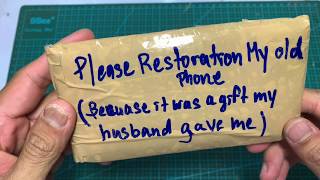 Please Restoration My old
Phone
(Becuase it was a gift my
husband gave me)